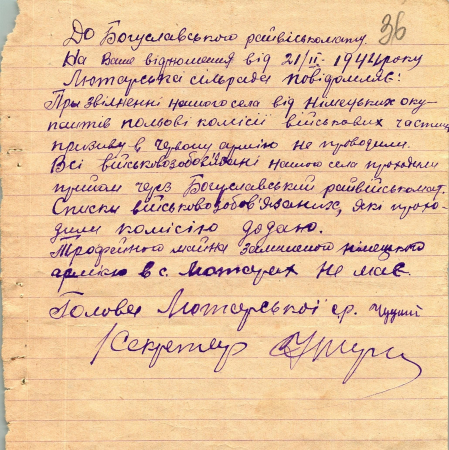 36
До Богуславського райвійськомату
На Ваше відношення від 21/III - 1944 року
Лютарська сільрада повідомляє:
При звілненні нашого села від німецьких оку-
пантів польові комісії військових частин
призиву в Червону армію не проводили.
Всі військовозобов'язані нашого села проходили
прийом через Богуславський райвійськомат.
Списки військовозобов'язаних, які прохо-
дили комісію додаю.
Трофейного майна залишеного німецькою
армією в с. Лютарях не має.
Голова Лютарської с.р.
Секретар